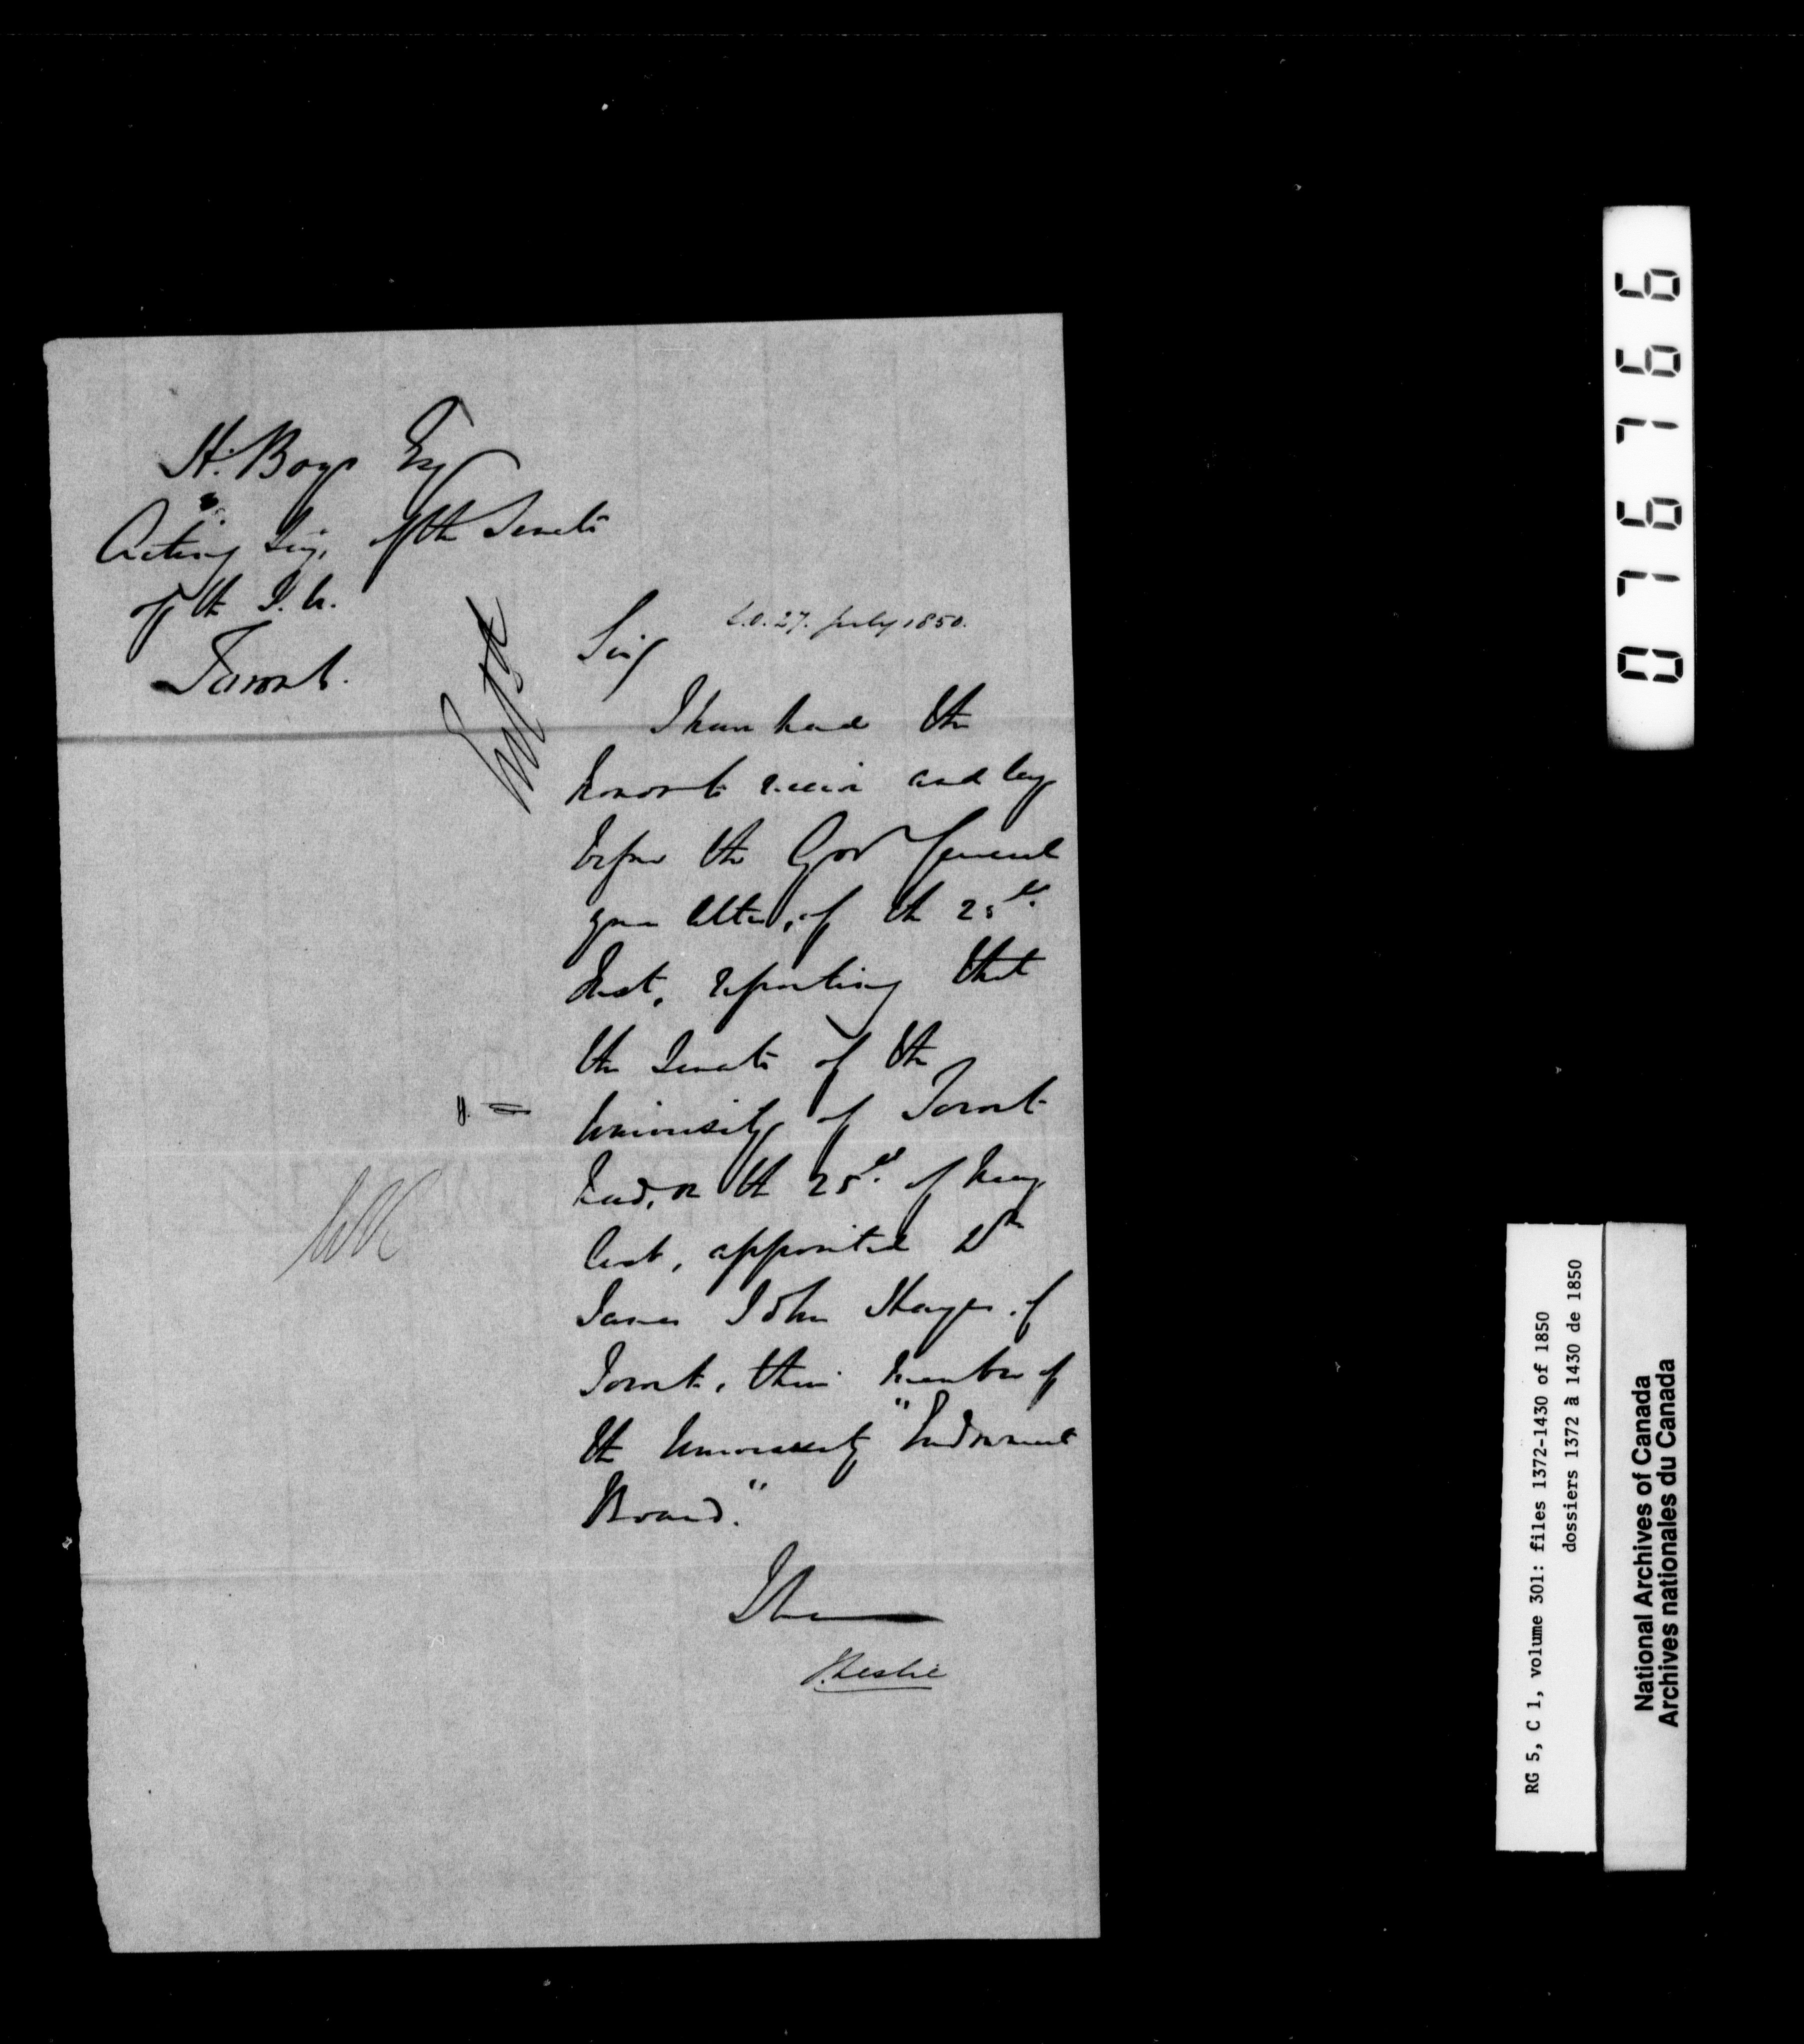 H. Boys Esq
Acting Secy. of the Senate
of the
Toronto.
S.O. 27. July 1850.
Sir
I have had the
honor to receive and lay
before the Gov General
your letter, of the 25th.
Inst, reporting that
the Senate of the
University of Toronto
had, on the 25th. of May
last, appointed Dr
James John Hayes of
Toronto, their member of
the University "Endowment
Board."
I have
J. Leslie
076766
RG 5, C 1, volume 301: files 1372-1430 of 1850
dossiers 1372 à 1430 de 1850
National Archives of Canada
Archives nationales du Canada